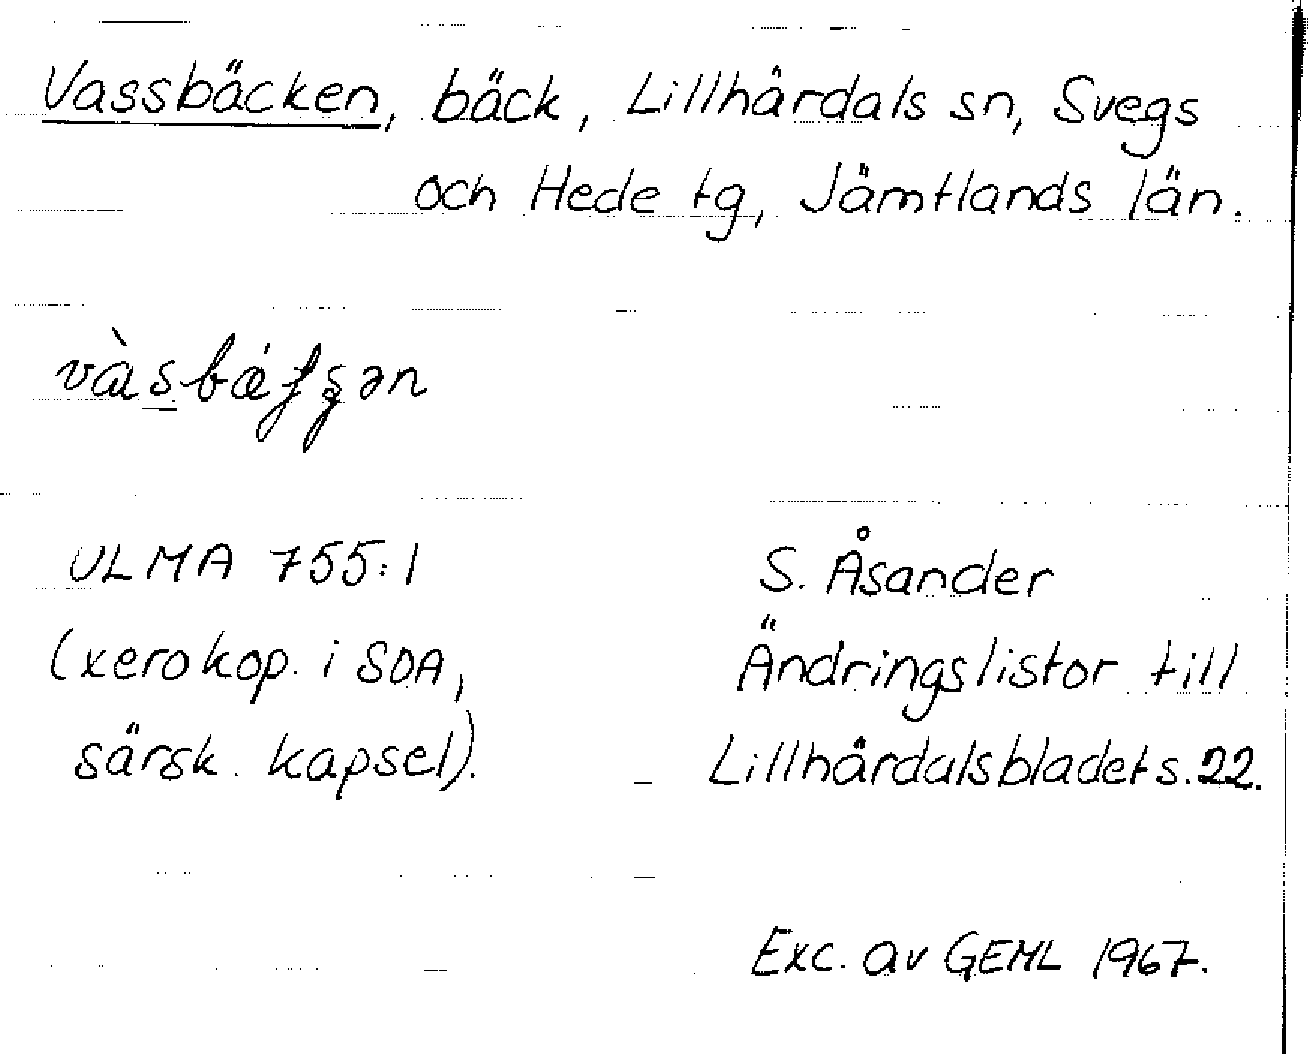 Vassbäcken, bäck, Lillhårdals sn, Svegs
och Hede tg, Jämtlands län.
ULMA 755:1
(xerokop. i SOA,
särsk. kapsel).
S. Åsander
Ändringslistor till
Lillhårdalsbladet s. 22.
Exc. av GEHL 1967.